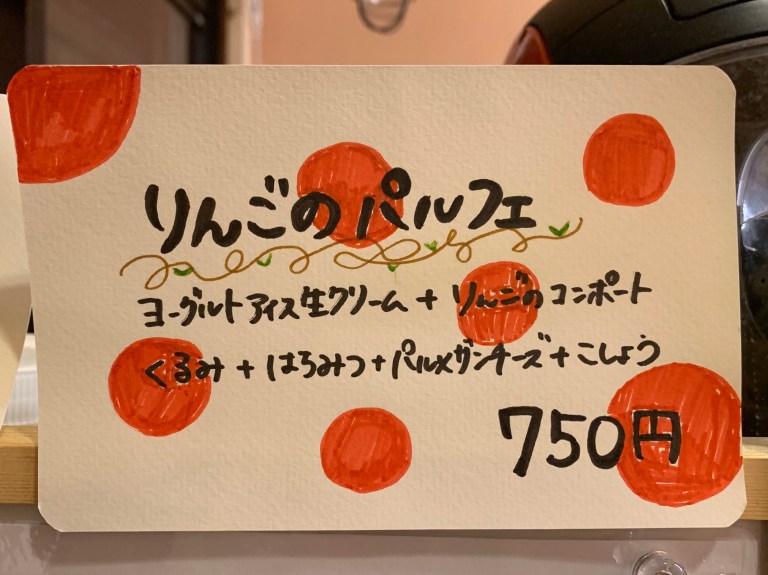 りんごのパルフェ
ヨーグルトアイス生クリーム + りんごのコンポート
くるみ + はちみつ + パルメザンチーズ + こしょう
750円